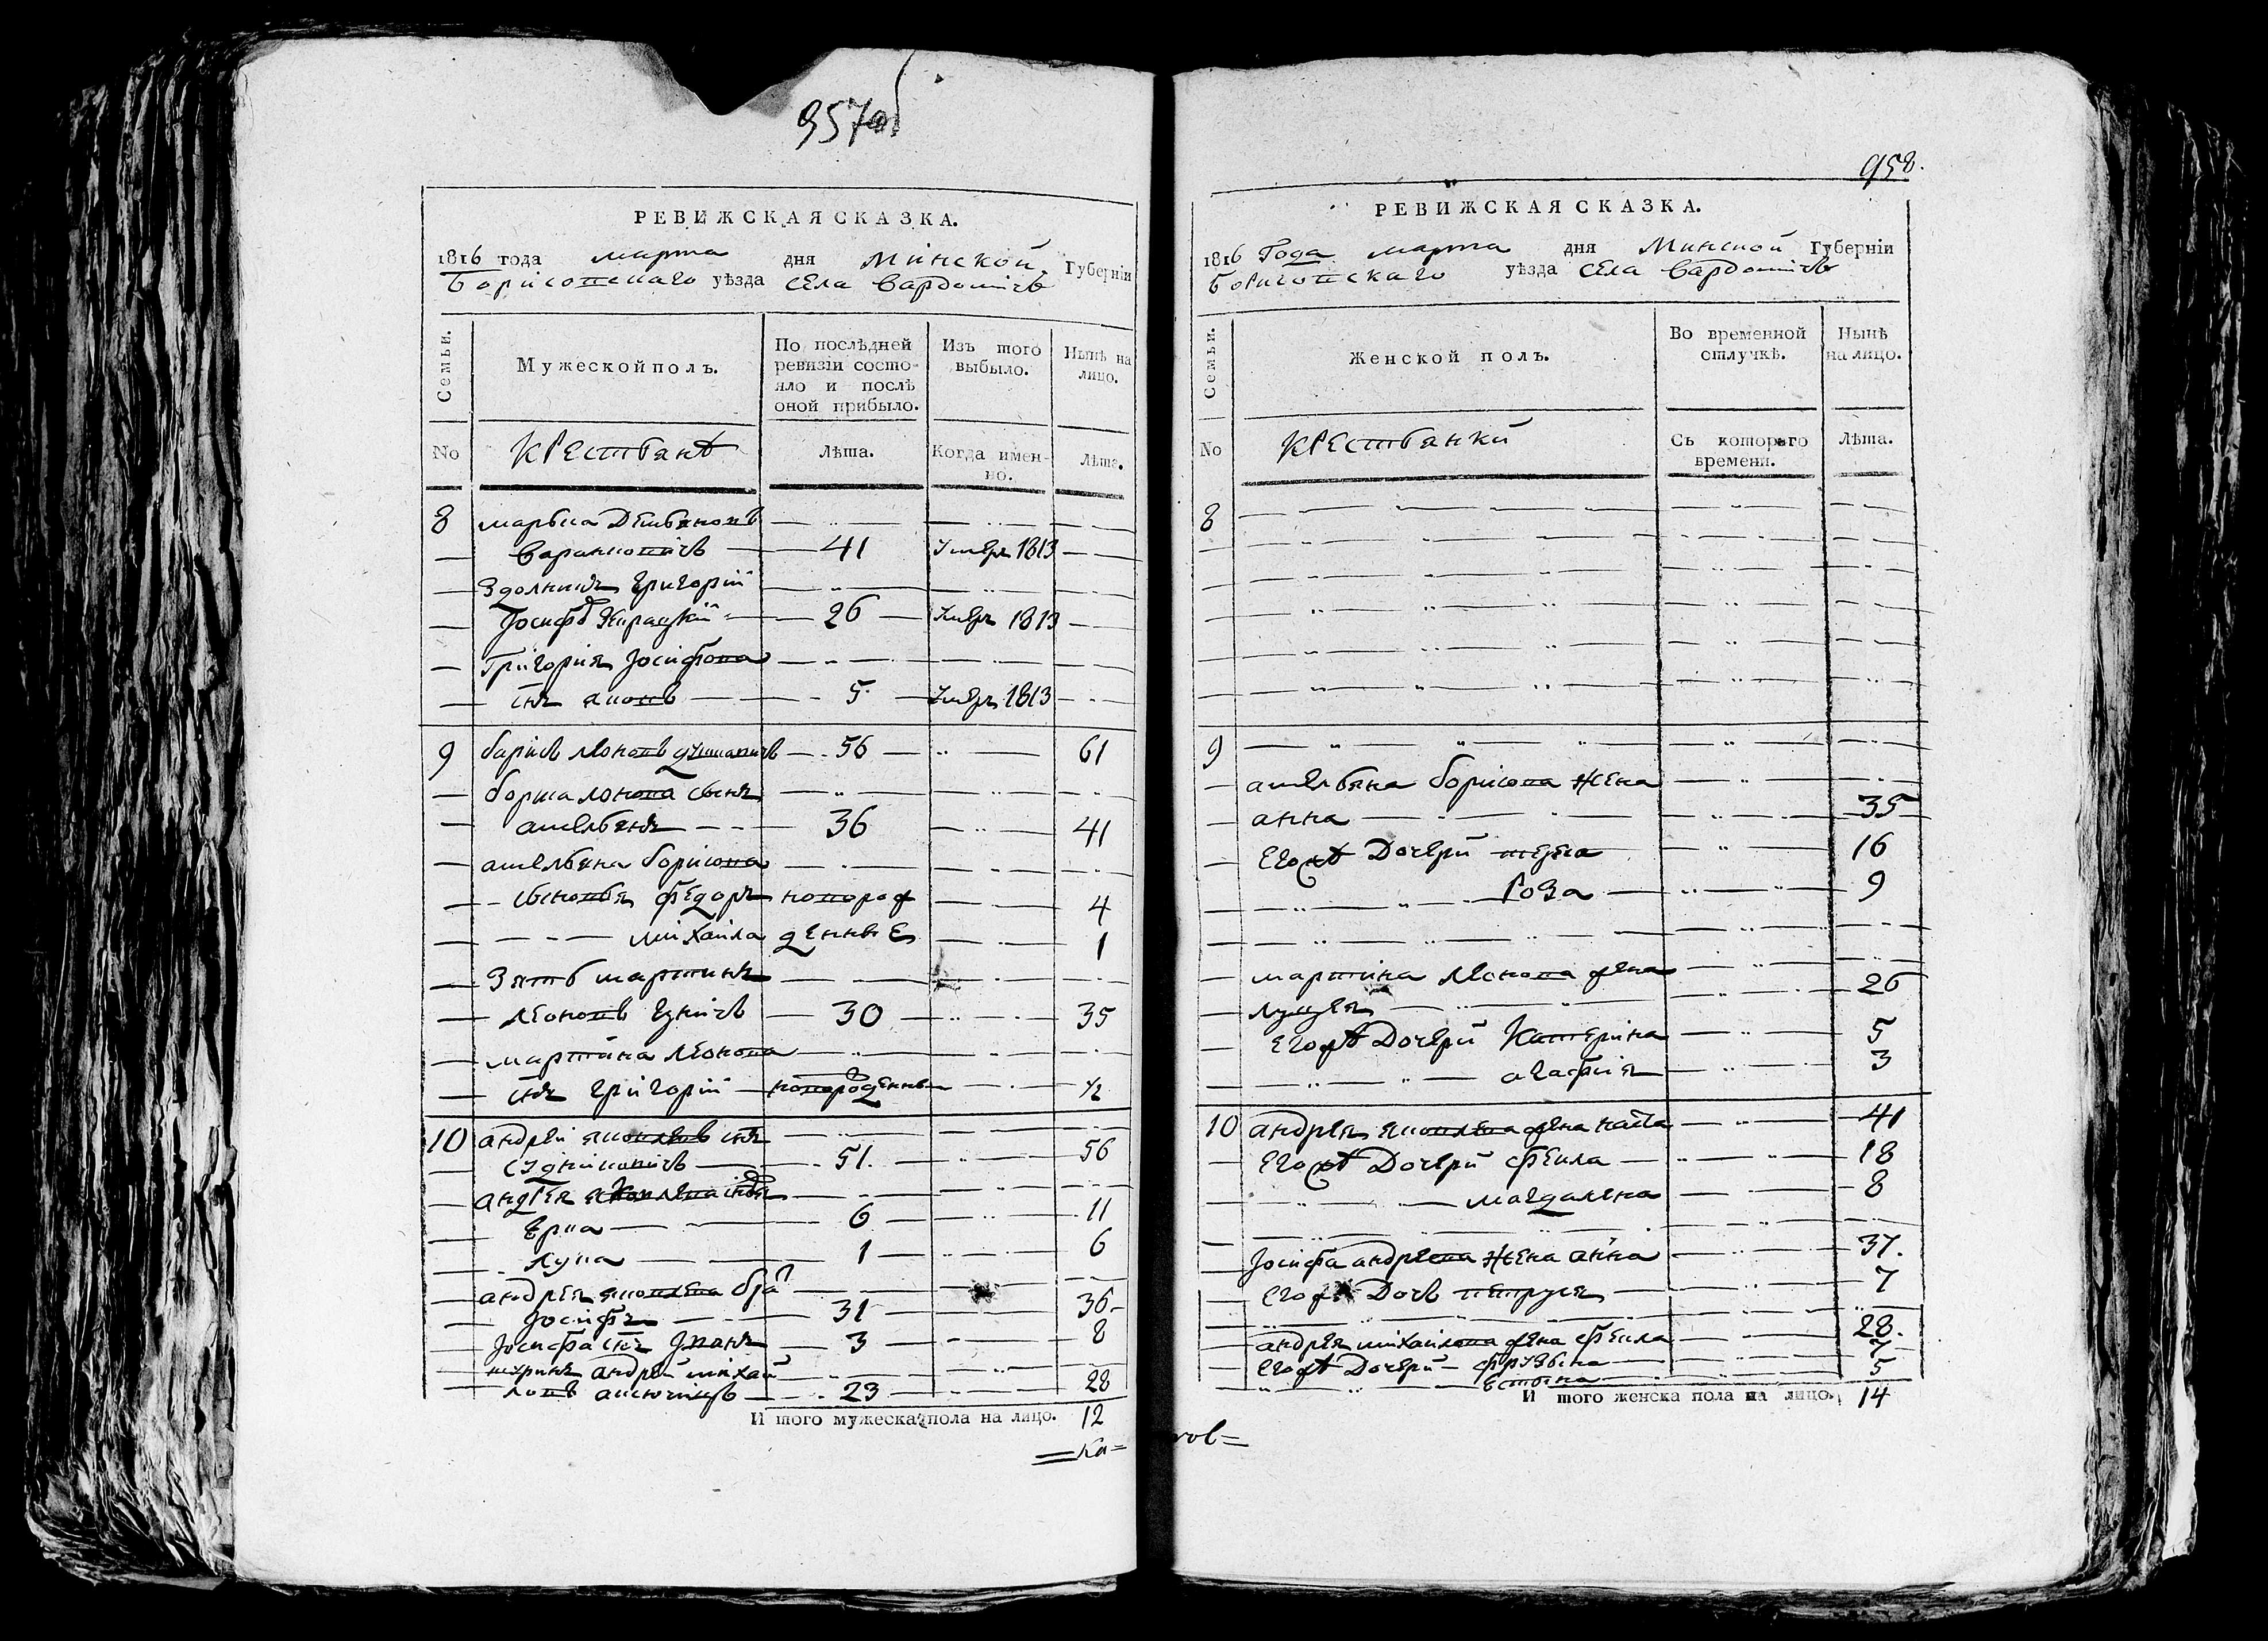 957об
РЕВИЖСКАЯ СКАЗКА.
1816 года марта дня Минской Губернiи
Борисовскаго уѣзда села Вардомичъ
Семьи.
Мужеской полъ.
По послѣдней ревизiи состояло и послѣ оной прибыло.
Изъ того выбыло.
Нынѣ на лицо.
No
Крестьянѣ
Лѣта.
Когда именно.
Лѣта.
8 Марька Демьяновъ
41 Умеръ 1813
Григорiй
Iосифъ 26 Умеръ 1813
Григорiя Iосифова
сынъ Яковъ 5 Умеръ 1813
9 56 61
сынъ
Амельянъ 36 41
Амельяна Борисова
сыновья Федоръ новорож 4
Михайла денные 1
Зять Мартинъ
Леоновъ 30 35
Мартина Леонова
сынъ Григорiй новорожденны 1/2
10 Андрей Яковлевъ сынъ
51. 56
Андрея Яковлева сыновья
6 11
Лука 1 6
Андрея Яковлева братъ
Iосифъ 31 36
Iосифа сынъ Иванъ 3 8
Шуринъ Андрей Михай
ловъ 23 28
И того мужеска пола на лицо. 12
958.
РЕВИЖСКАЯ СКАЗКА.
1816 Года марта дня Минской Губернiи
Борисовскаго уѣзда села Вардомичъ
Семьи.
Женской полъ.
Во временной отлучкѣ.
Нынѣ на лицо.
No
Крестьянки
Съ которого времени.
Лѣта.
8
9
Амельяна Борисова жена
Анна 35
Егожъ дочери Текла 16
Роза 9
Мартина Леонова жена
Луцея 26
Егожъ дочери Катерина 5
Агафiя 3
10 Андрея Яковлева жена Настa 41
Егожъ дочери Фекла 18
Магдалена 8
Iосифа Андреева жена Анна 37.
Егожъ дочь Петруся 7
Андрея Михайлова жена Фекла 28.
Егожъ дочери 7
5
И того женска пола на лицо. 14